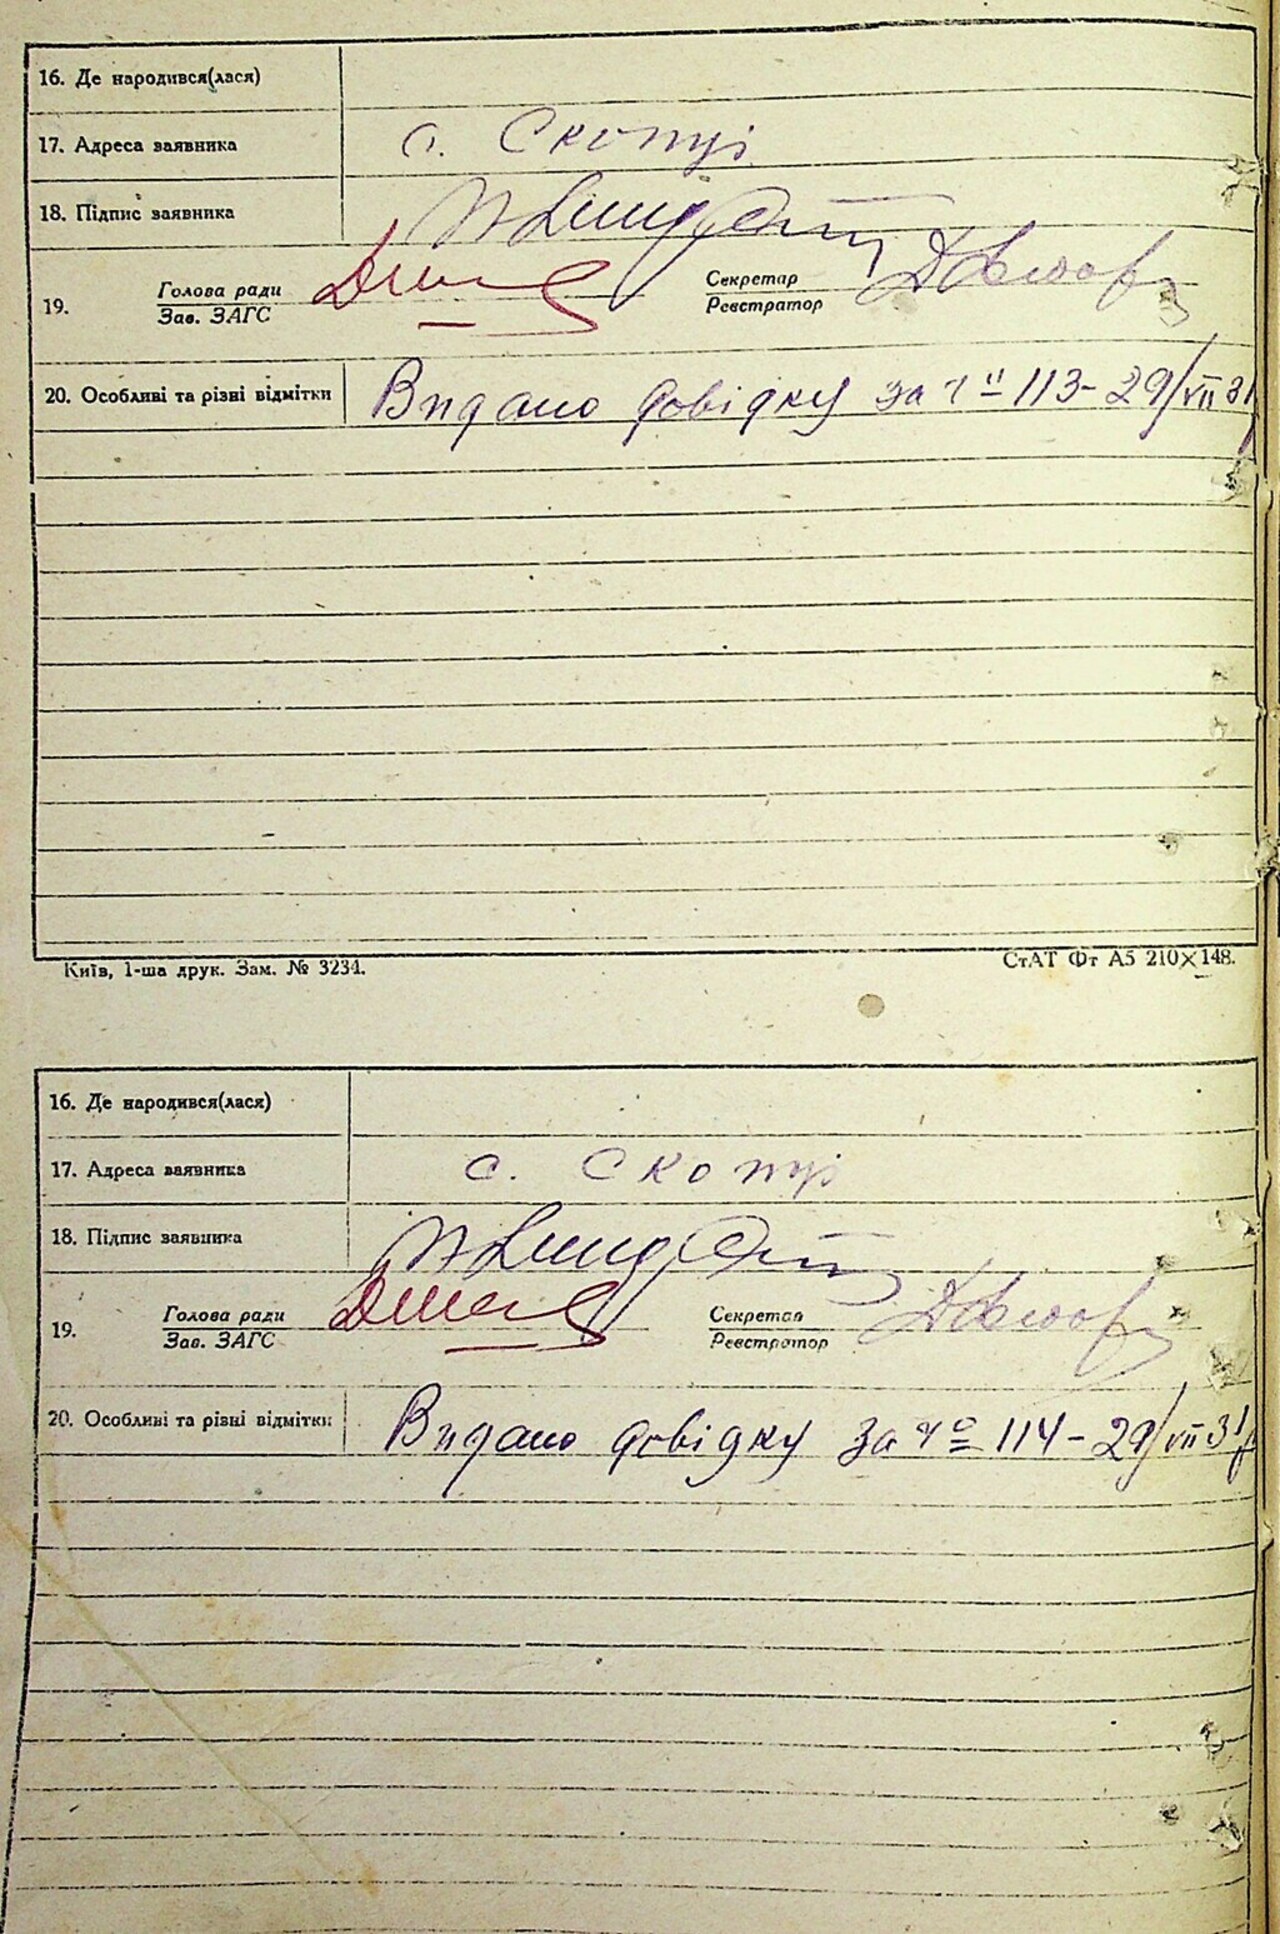 16. Де народився(лася)
17. Адреса заявника с. Скопці
18. Підпис заявника
19. Голова ради Секретар
Зав. ЗАГС Реєстратор
20. Особливі та різні відмітки Видано довідку за ч 113-29/VII 31
Київ, 1-ша друк. Зам. № 3234. СтАТ Фт А5 210×148.
16. Де народився(лася)
17. Адреса заявника с. Скопці
18. Підпис заявника
19. Голова ради Секретар
Зав. ЗАГС Реєстратор
20. Особливі та різні відмітки Видано довідку за ч 114-29/VII 31